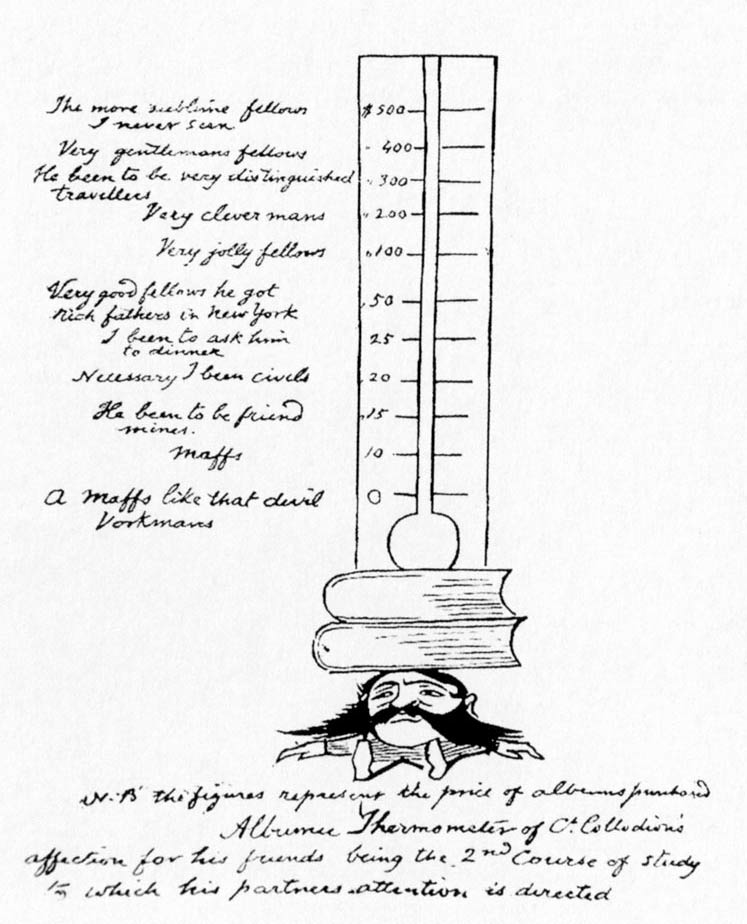 The more sublime fellows
I never seen
$500
Very gentlemans fellows
" 400
He been to be very distinguished
travellers
" 300
Very clever mans
" 200
Very jolly fellows
" 100
Very good fellows he got
rich fathers in New York
" 50
I been to ask him
to dinner
25
Necessary I been civils
" 20
He been to be friend
mines.
" 15
Maffs
10
A maffs like that devil
Vorkmans
0
N.B. the figures represent the price of albums purchased
Thermometer of Ct. Collodion's
affection for his friends being the 2nd Course of study
to which his partners attention is directed